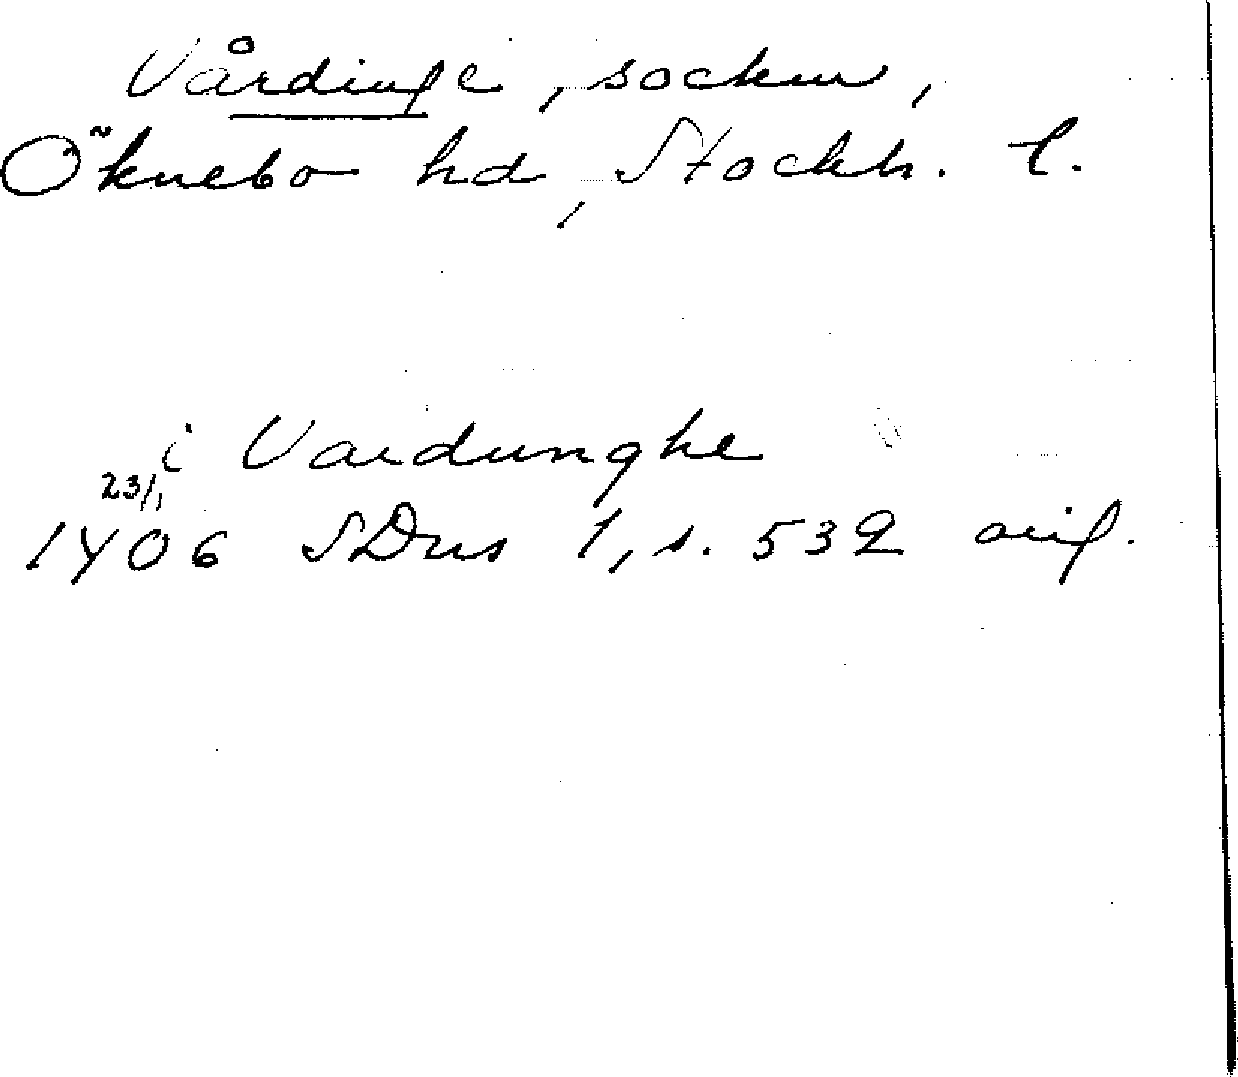 Vårdinge, socken,
Öknebo hd, Stockh. l.
i Vardunghe
23/1
1406 SDns 1, s. 532 orig.